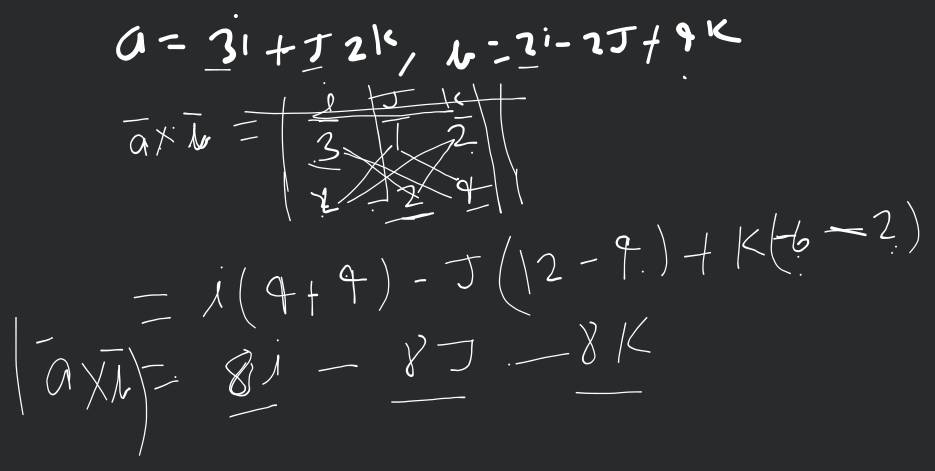 a = 3i + J 2k, b = 2i - 2J + 4K
a̅ × b̅ = | i J K |
3 1 2
2 -2 4
= i(4+4) - J(12-4) + K(-6-2)
|a̅ × b̅| = 8i - 8J - 8K